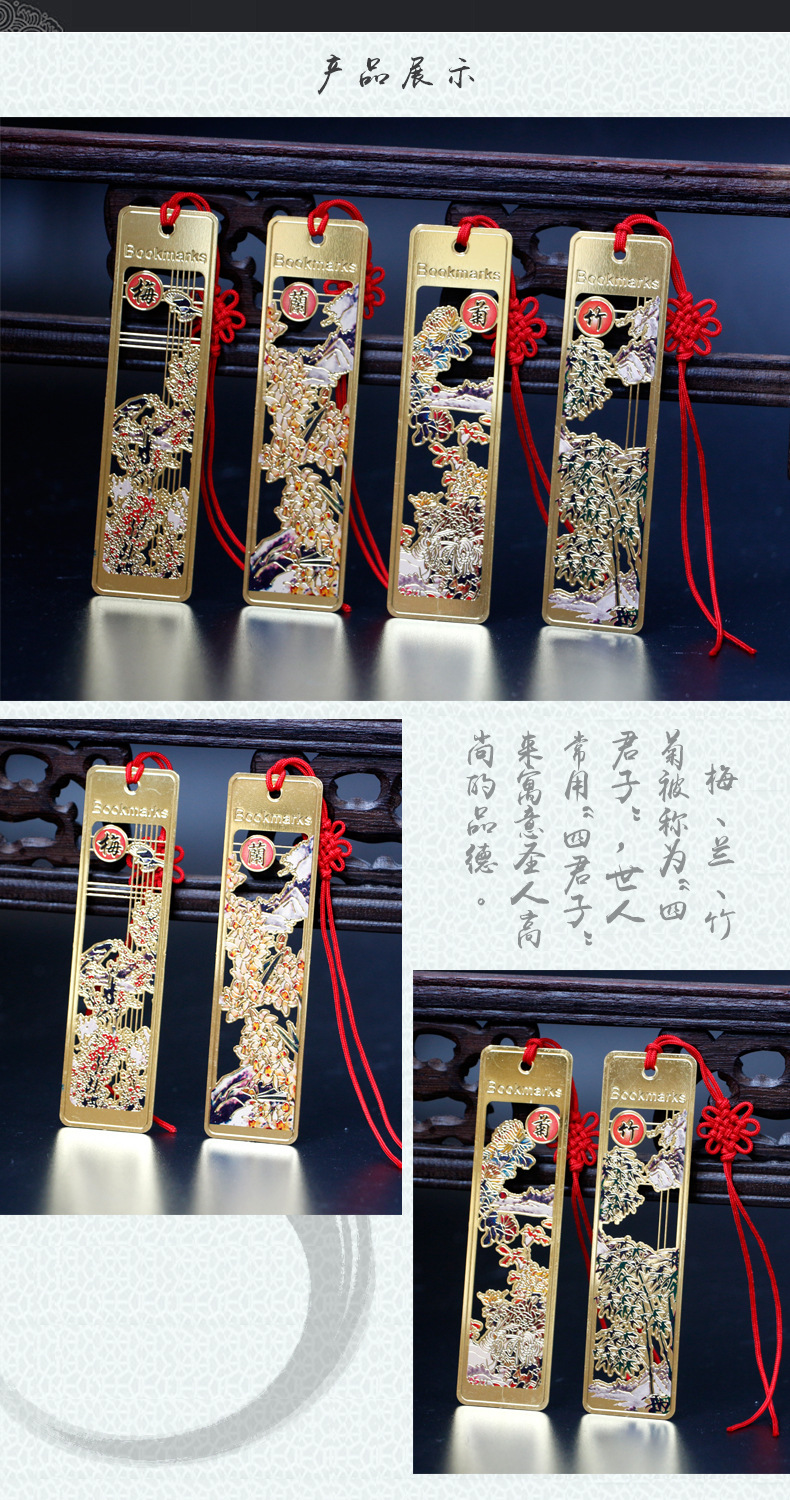 产品展示
Bookmarks
梅
Bookmarks
蘭
Bookmarks
菊
Bookmarks
竹
Bookmarks
梅
Bookmarks
蘭
梅、兰、竹
菊被称为“四
君子”,世人
常用“四君子”
来寓意圣人高
尚的品德。
Bookmarks
菊
Bookmarks
竹